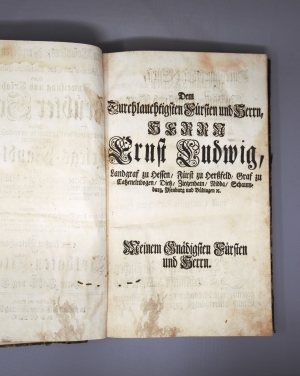 Dem
Durchlauchtigsten Fürsten und Herrn,
HERRN
Ernst Ludwig,
Landgraf zu Hessen/ Fürst zu Herßfeld/ Graf zu
Catzenelnbogen/ Dietz/ Ziegenhein/ Nidda/ Schaum-
burg, Ysenburg und Büdingen ꝛc.
Meinem Gnädigsten Fürsten
und Herrn.